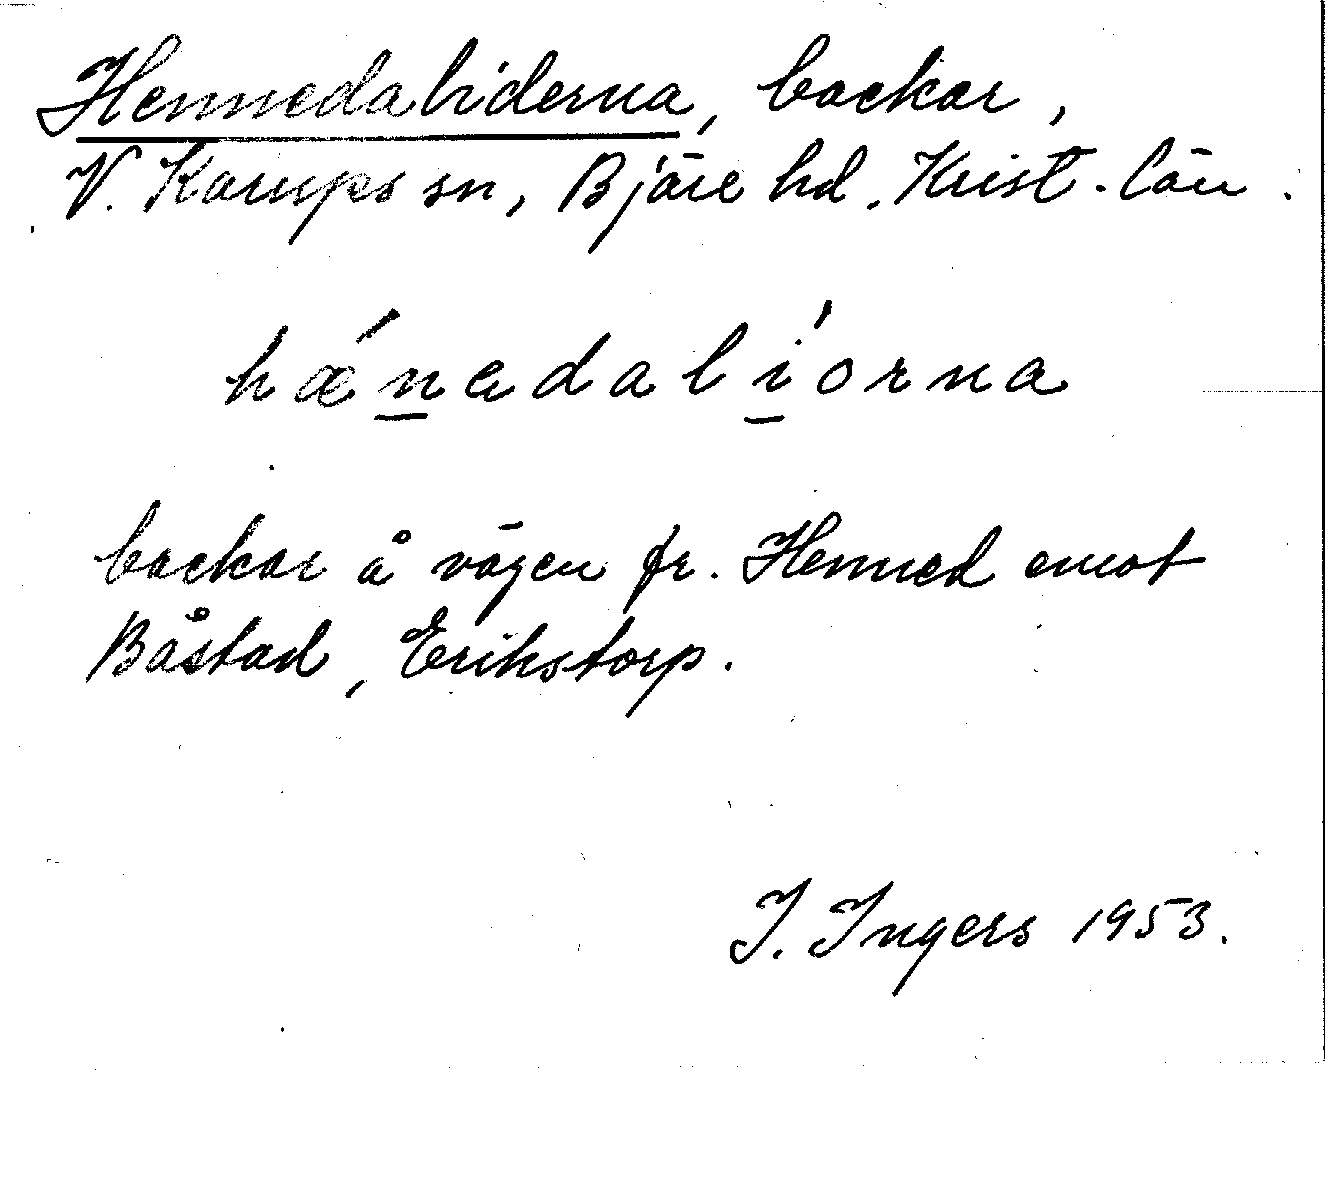 Hennedaliderna, backar,
V. Karups sn, Bjäre hd. Krist. län.
hǽn̲edalí̲orna
backar å vägen fr. Henned emot
Båstad, Erikstorp.
I. Ingers 1953.